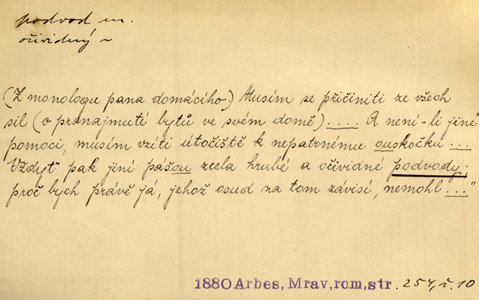 podvod m.
očividný ~
(Z monologu pana domácího) Musím se přičiniti ze všech
sil (o pronajmutí bytů ve svém domě) .... A není-li jiné
pomoci, musím vzíti útočiště k nepatrnému ouskočku ...
Vždyť pak jiní pášou zcela hrubé a očividné podvody;
proč bych právě já, jehož osud na tom závisí, nemohl ..."
1880 Arbes, Mrav, rom, str. 254, č. 10